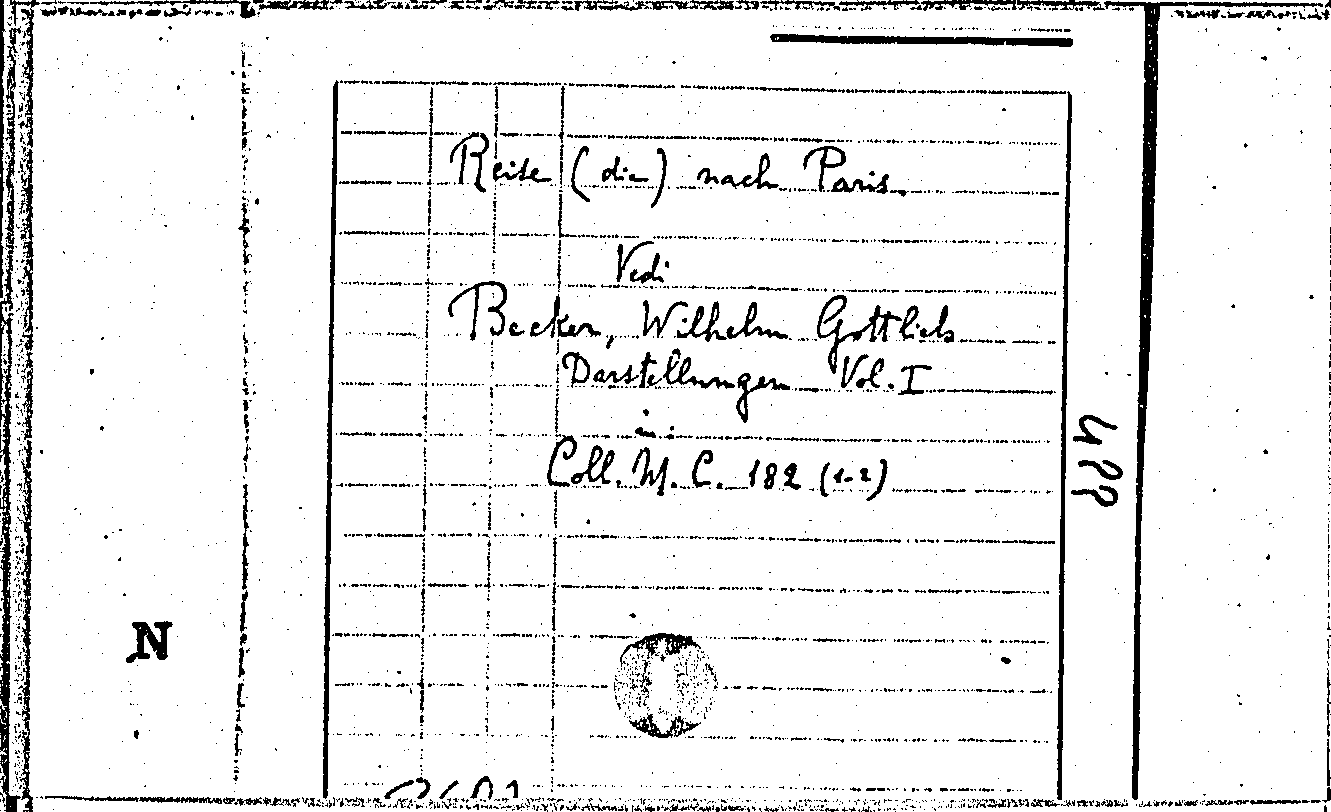 Reise (die) nach Paris.
Vedi
Becker, Wilhelm Gottlieb
Darstellungen Vol. I
in:
Coll. M. C. 182 (1-2)
N